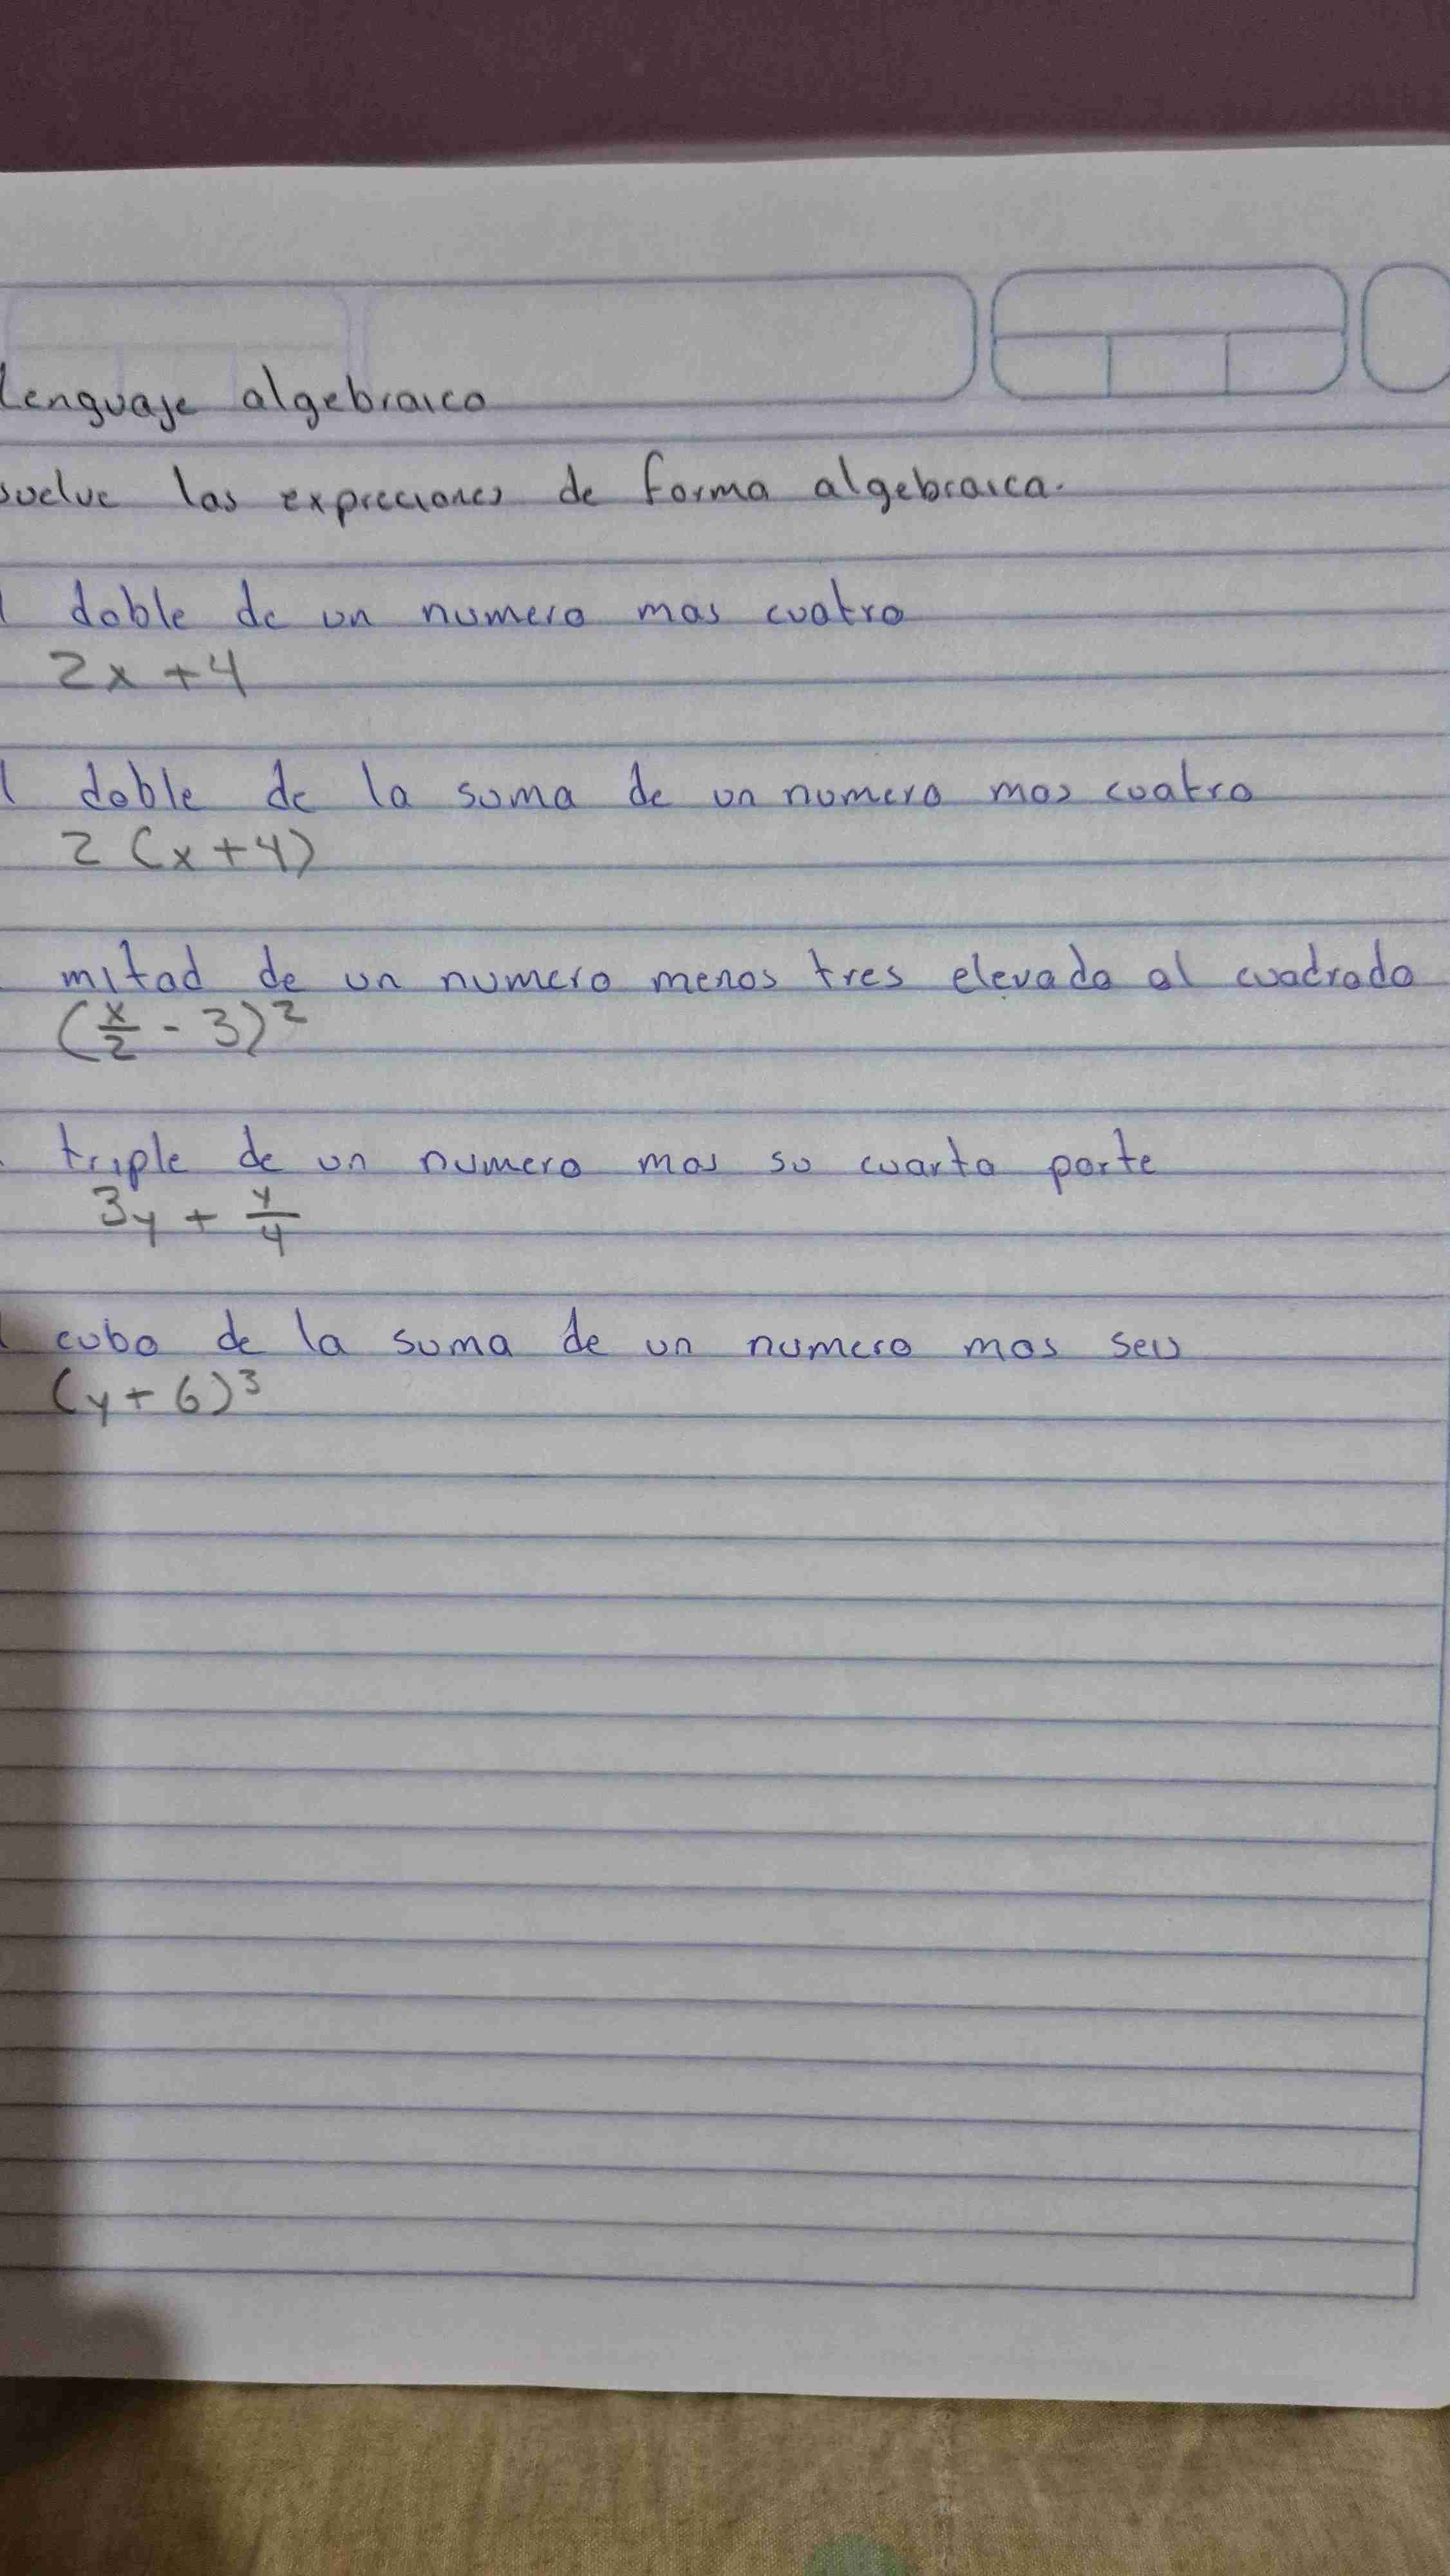 Lenguaje algebraico
suelve las expreciones de forma algebraica.
l doble de un numero mas cuatro
2x + 4
l doble de la suma de un numero mas cuatro
2 (x+4)
mitad de un numero menos tres elevado al cuadrado
(x/2 - 3)²
triple de un numero mas su cuarta parte
3y + y/4
l cubo de la suma de un numero mas seis
(y + 6)³